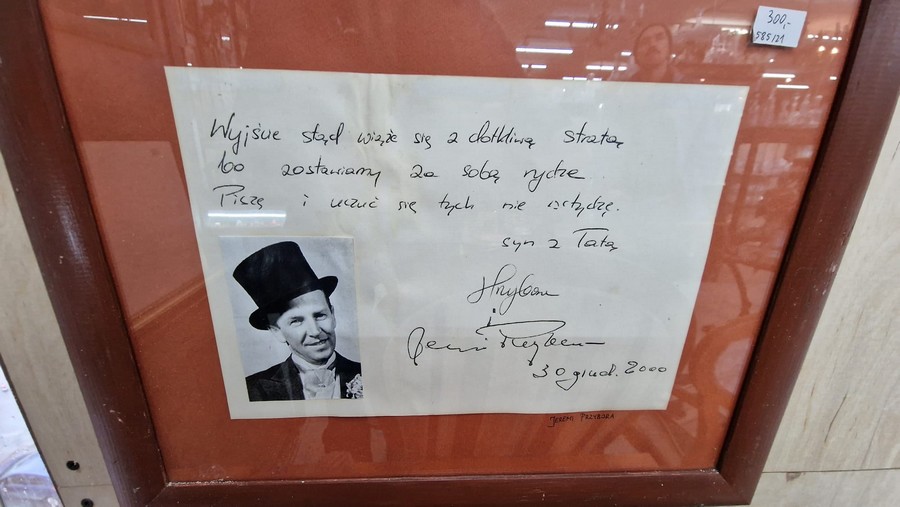 300,-
585/21
Wyjście stąd wiąże się z dotkliwą stratą
bo zostawiamy za sobą rydze
Piszę i uczuć się tych nie wstydzę.
syn z Tatą
i
30 grud. 2000
JEREMI PRZYBORA